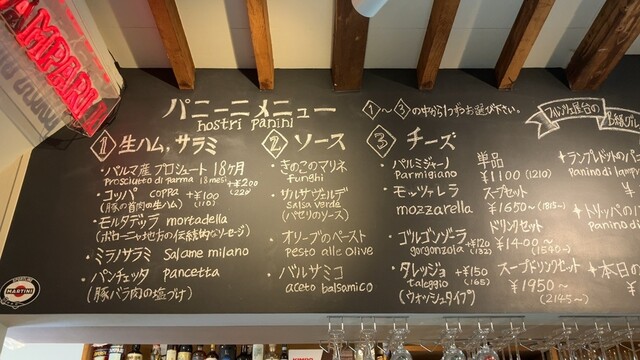 CAMPARI
パニーニメニュー
nostri panini
①~③の中から1つずつお選び下さい。
1 生ハム,サラミ
・パルマ産プロシュート 18ヶ月
Prosciutto di Parma 18mesi +¥200
(220)
・コッパ coppa +¥100
(豚の首肉の生ハム) (110)
・モルタデッラ mortadella
(ボローニャ地方の伝統的なソーセージ)
・ミラノサラミ Salame milano
・パンチェッタ pancetta
(豚バラ肉の塩づけ)
2 ソース
・きのこのマリネ
funghi
・サルサヴェルデ
salsa verde
(パセリのソース)
・オリーブのペースト
pesto alle olive
・バルサミコ
aceto balsamico
3 チーズ
・パルミジャーノ
Parmigiano
・モッツァレラ
mozzarella
・ゴルゴンゾーラ +¥120
gorgonzola (132)
・タレッジョ +¥150
taleggio (165)
(ウォッシュタイプ)
単品
¥1100 (1210)
スープセット
¥1650~(1815~)
ドリンクセット
¥1400~
(1540~)
スープドリンクセット
¥1950~
(2145~)
屋台の
・ランプレドットのパ
Panino di lamp
¥
・トリッパの
Panino di
¥
・本日の
¥
MARTINI